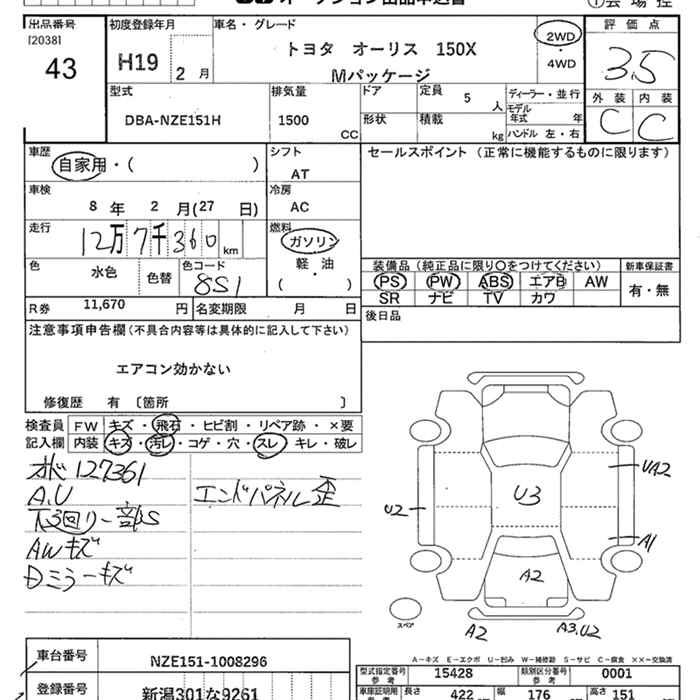 オークション出品申込書
① 会場控
出品番号 初度登録年月 車名・グレード 評価点
120381
43
H19 2 月
トヨタ オーリス 150X
Mパッケージ
2WD
・
4WD
3.5
型式 排気量 ドア 定員 5 人 ディーラー・並行 外装 内装
DBA-NZE151H 1500 CC
形状 積載 kg
モデル年式 年
ハンドル 左・右
C C
車歴
自家用・( )
シフト
AT
セールスポイント (正常に機能するものに限ります)
車検
8 年 2 月(27 日)
冷房
AC
走行
12万7千360 km
燃料
ガソリン
軽・油
( )
色 水色 色替 色コード
8S1
装備品 (純正品に限り○をつけてください) 新車保証書
PS PW ABS エアB AW 有・無
SR ナビ TV カワ
R券 11,670 円 名変期限 月 日
後日品
注意事項申告欄(不具合内容等は具体的に記入して下さい)
エアコン効かない
修復歴 有 〔箇所 〕
検査員 FW キズ・飛石・ヒビ割・リペア跡・×要
記入欄 内装 キズ・汚レ・コゲ・穴・スレ・キレ・破レ
127361
A.U エンドパネル歪
AWキズ
Dミラーキズ
U2
U3
UA2
A1
A2
スペア
A2
A3.U2
A-キズ E-エクボ U-凹み W-補修跡 S-サビ C-腐食 ××-交換済
車台番号 NZE151-1008296
型式指定番号 参考 15428 類別区分番号 参考 0001
登録番号 新潟301な9261
車庫証明用 参考 長さ 422 cm 幅 176 cm 高さ 151 cm